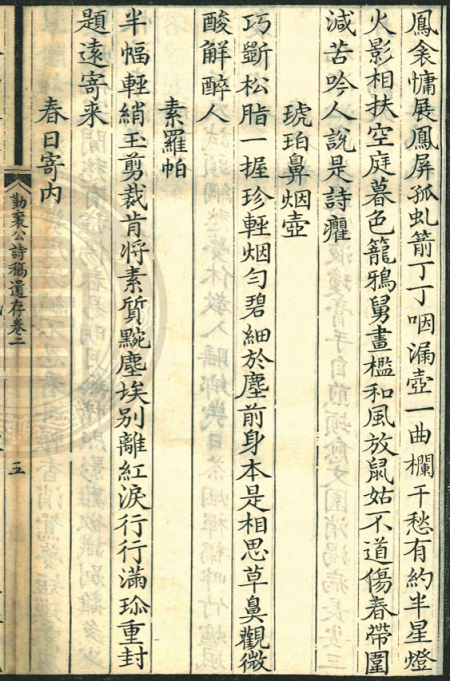 鳳衾慵展鳳屏孤虬箭丁丁咽漏壺一曲欄干愁有約半星燈
火影相扶空庭暮色籠鴉舅畫檻和風放鼠姑不道傷春帶圍
減苦吟人說是詩癯
琥珀鼻烟壺
巧斵松脂一握珍輕烟勻碧細於塵前身本是相思草鼻觀微
酸解醉人
素羅帕
半幅輕綃玉剪裁肯將素質點塵埃別離紅淚行行滿珎重封
題遠寄来
春日寄内
勤襄公詩稿遺存卷二
五